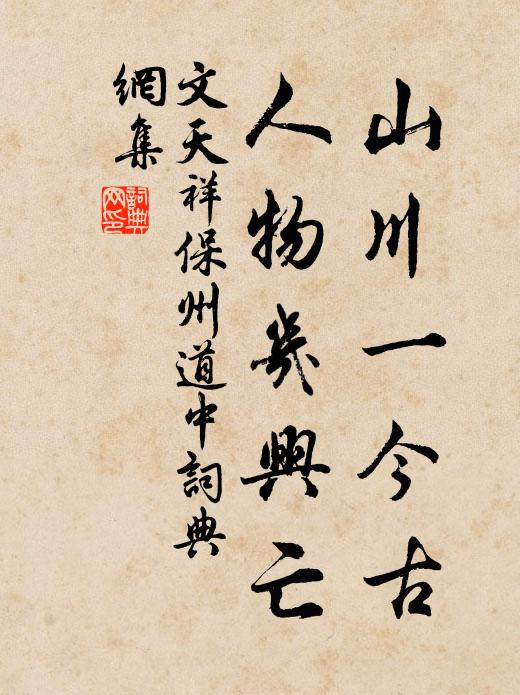 山川一今古
人物幾興亡
文天祥保州道中詞典
網集
詞典
网印